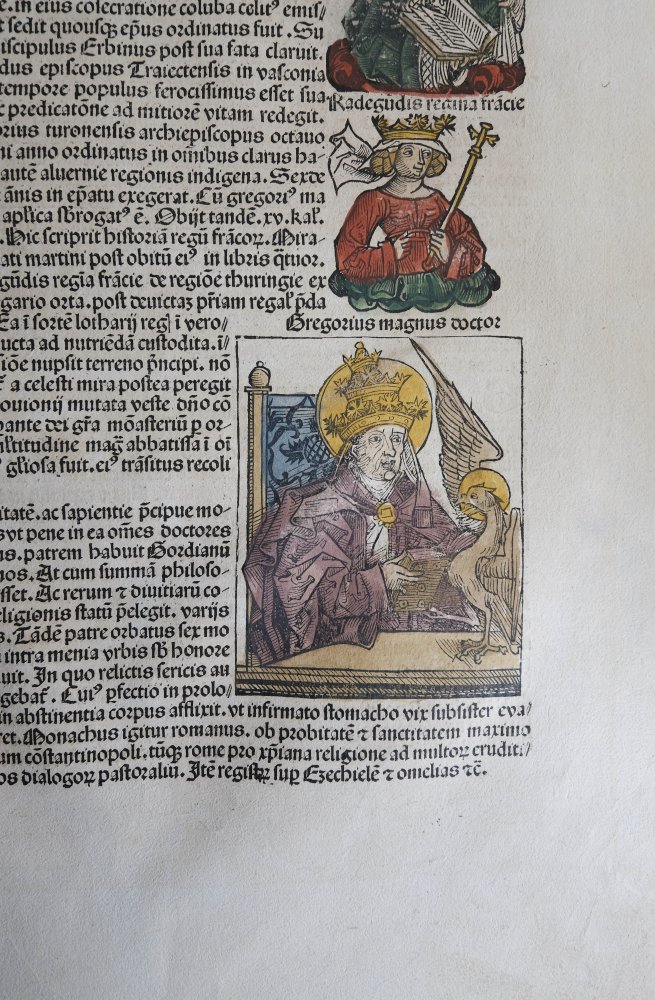 e. in eius cōsecratione coluba celit⁹ emis/
t sedit quousqꝫ ep̄us ordinatus fuit. Su
iscipulus Erbinus post sua fata claruit.
dus episcopus Traiectensis in vasconia
tempore populus ferocissimus esset sua
predicatōne ad mitiorē vitam redegit.
Radegūdis regina frācie
orius turonensis archiepiscopus octauo
ni anno ordinatus in om̄ibus clarus ha-
autē aluernie regionis indigena. Sexde
ānis in ep̄atu exegerat. Cū gregori⁹ ma
ap̄lica sb̄rogat⁹ ē. Obijt tandē. xv. kal̄.
. Hic scripsit historiā regū frācoꝝ. Mira-
ati martini post obitū ei⁹ in libris q̄tuor.
gūdis regīa frācie de regiōe thuringie ex
gario orta. post deuictaꝫ p̄riam regal̄ p̄da
Ea ī sortē lotharij reḡ ī vero/
Gregorius magnus doctor
ucta ad nutriēdā custodita. ī/
siōe nupsit terreno p̄ncipi. nō
a celesti mira postea peregit
ouionij mutata veste dn̄o cō
pante dei gr̄a mōasteriū ꝑ or-
titudine maḡ abbatissa ī oī
gl̄iosa fuit. ei⁹ trāsitus recoli
itatē. ac sapientie p̄cipue mo-
vt pene in ea om̄es doctores
ns. patrem habuit Gordianū
nos. At cum summā philoso-
sset. Ac rerum ⁊ diuitiarū co-
eligionis statū p̄elegit. varijs
s. Tādē patre orbatus sex mo
intra menia vrbis sb̄ honore
uit. In quo relictis sericis au
gebat̄. Cui⁹ ꝑfectio in prolo/
in abstinentia corpus afflixit. vt infirmato stomacho vix subsister eua/
ret. Monachus igitur romanus. ob probitatē ⁊ sanctitatem maximo
um cōstantinopoli. tūqꝫ rome pro xp̄iana religione ad multoꝝ eruditi/
os dialogoꝝ pastoraliū. Itē registꝝ suꝑ Ezechielē ⁊ omelias ⁊c̄.